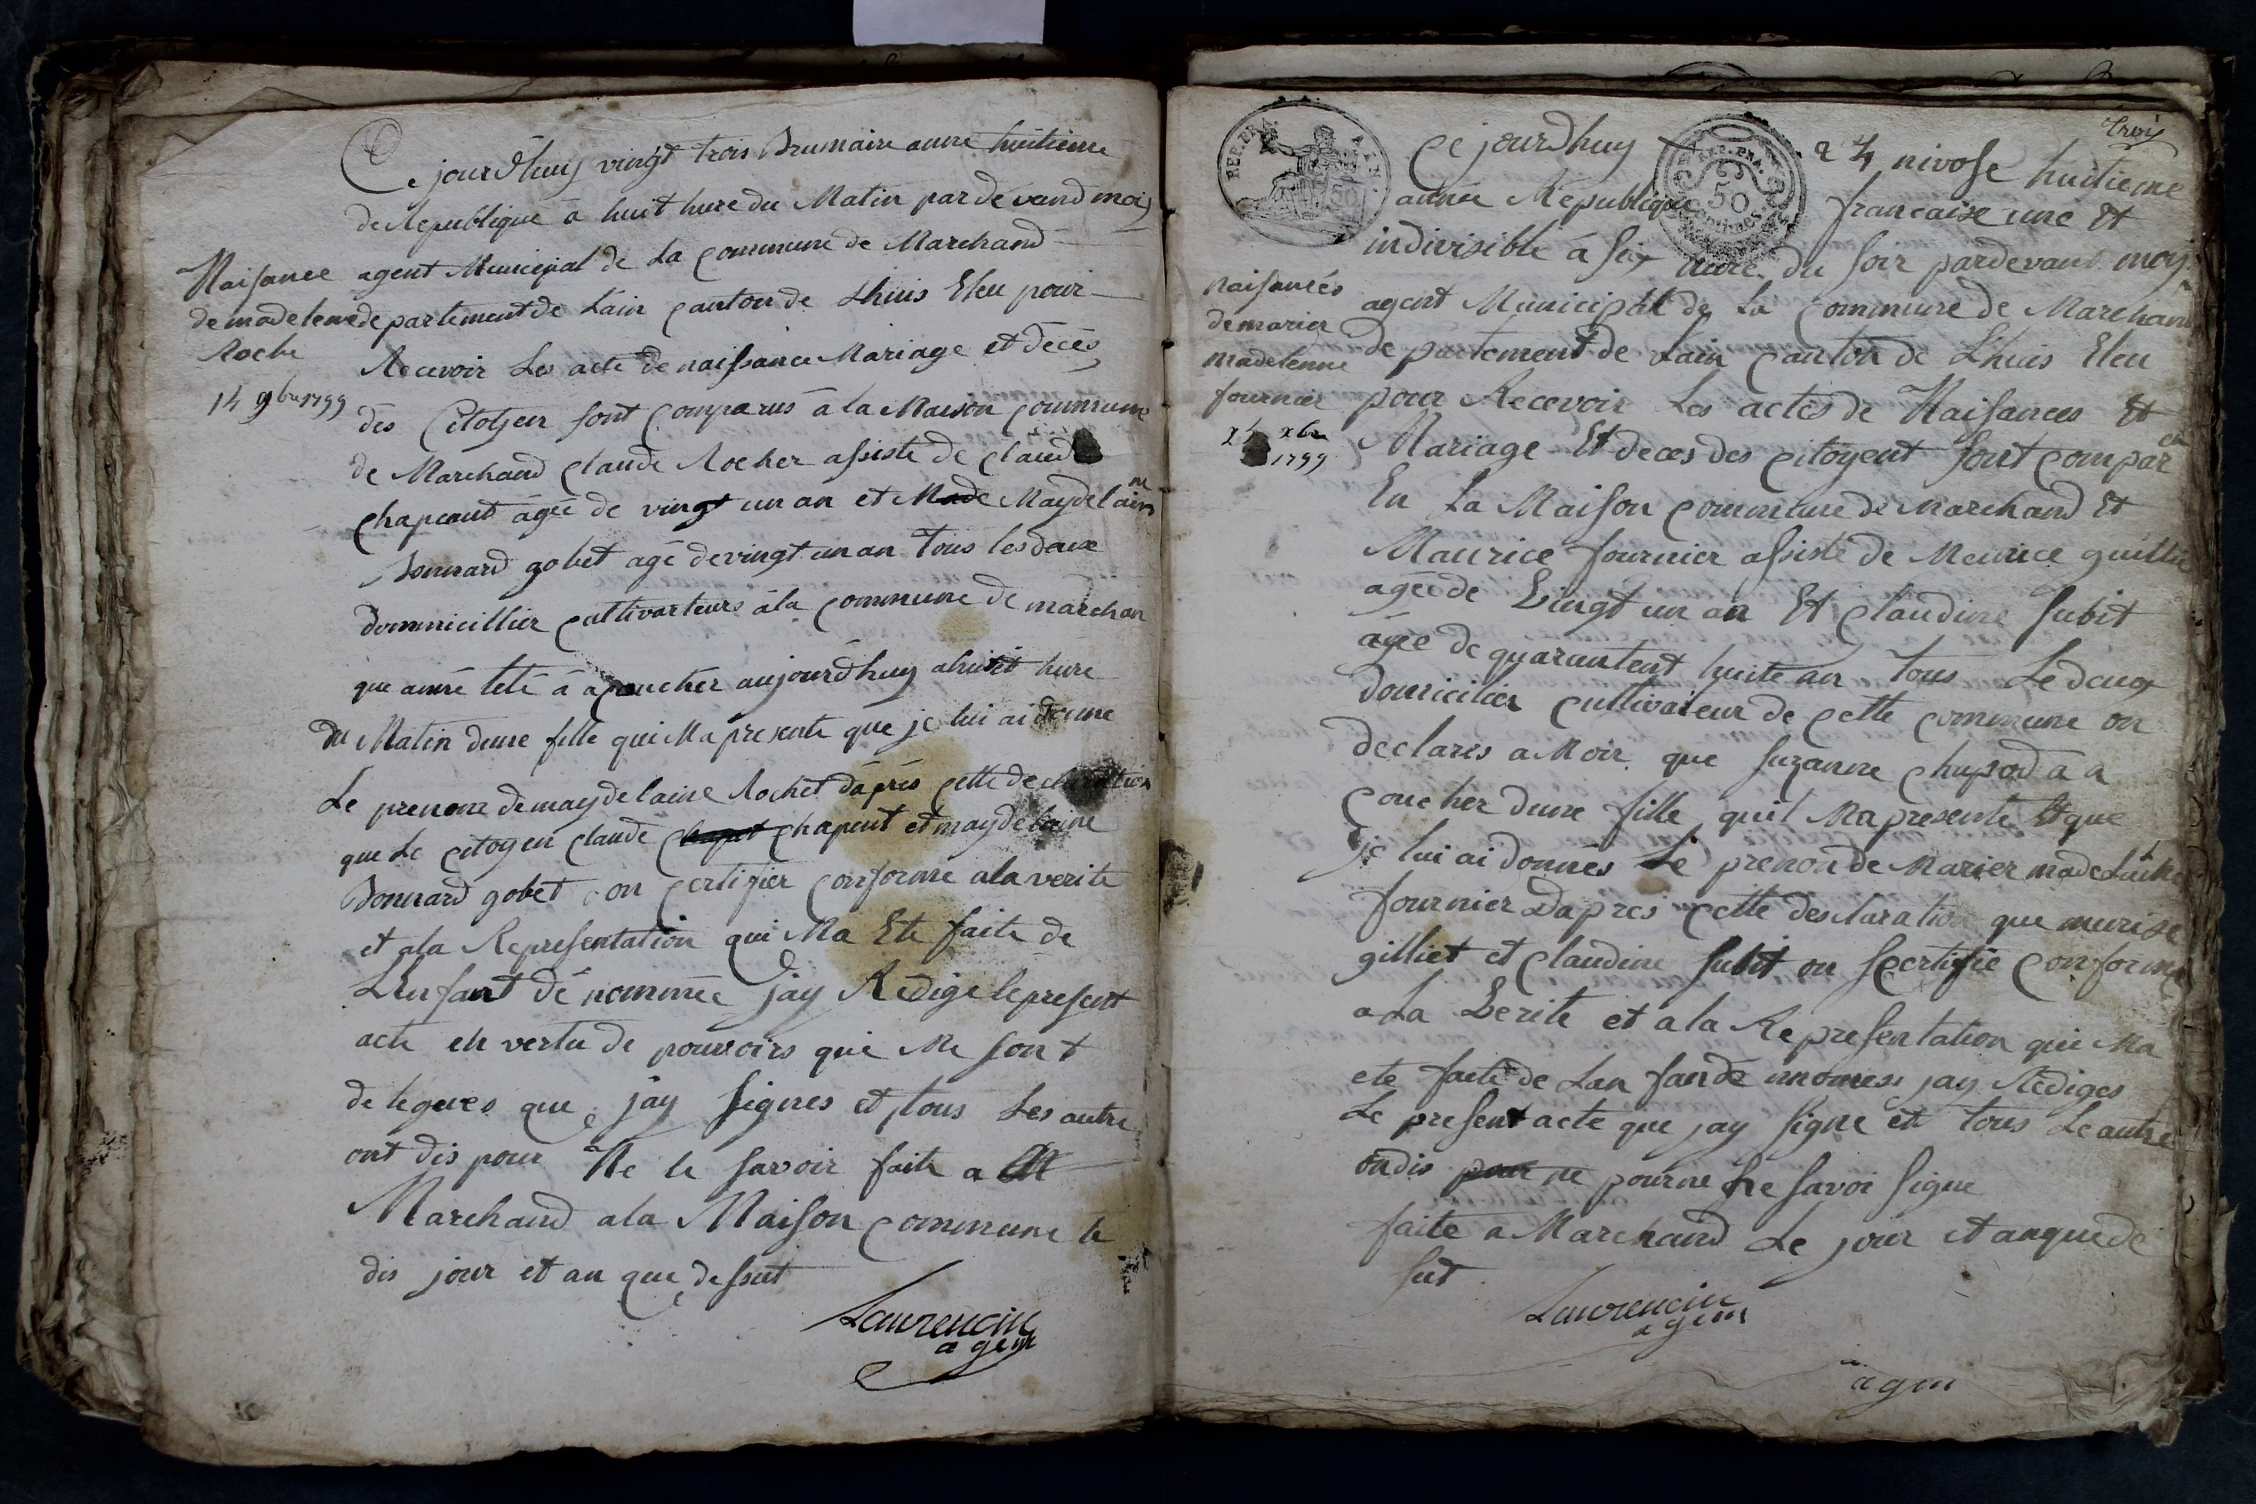 Ce jourdhuy vingt trois Brumaire anne huitieme
de Republique à huit hure du Matin par dé vand moy
agent Municipal de La Commune de Marchand
departement de Lain Canton de Lhuis Eleu pour
Recevoir Les acte de naissance Mariage et décés
des Citoÿen sont Comparus à la Maison Commune
de Marchand Claude Rocher assiste de Claud
Chapeaut âgée de vingt un an et Made Maydelainne
Bonnard gobet agé de vingt un an tous les deux
dommicillier Cultivarteurs à la Commune de marchan
que anné teté à acoucher aujourdhuy ahuitet hure
du Matin dune fille qui Ma presente que je lui ai donne
Le prenom de maydelaine Rochet dáprés Cette declaration
que Le Citoyen Claude Chaput Chapeut et maydelaine
Bonnard gobet on Certifier Conforme ala verite
et ala Representation qui Ma Ete faite de
LEnfant dé nommée jay Rédige le present
acte en vertu de pouvoirs que Me sont
delegues que jay signes et tous Les autre
ont dis pour Ne le savoir faite a
Marchand ala Maison Commune le
dis jour et an que dessut
Laurencin
agent
Naisance
de madelene
Roche
14 9bre 1799
trois
REP. FRA.
REP. FRA.
50
Ce jourdhuy 24 nivose huitieme
année Republique francaise une Et
indivisible à six hure du soir pardevant moy
agent Municipal de La Commune de Marchand
de partement de Lain Canton de Lhuis Eleu
pour Recevoir Les actes de Naisances Et
Mariage Et deces des Citoyent sont Comparen
En La Maison Commune de Marchand Et
Maurice fournier assiste de Meurice
agée de Vingt un an Et Claudine subit
agée de quarantent huite an tous Le deux
domicilier Cultivateur de Cette Commune on
declares a Moir que suzanne Chapod à a
Coucher dune fille quil Ma presente Et que
je lui ai donnés Le prenon de Marier madelaine
fournier Dapres Cette desclaration que meurise
gilliet et Claudine subit on sCertifie Conforme
a La Verite et a la Representation qui Ma
ete faite de Lan fande nnomes jay Rédiges
Le present acte que jay signe et tous Le autre
ondis pour ne pourne Le savoi signe
faite a Marchand Le jour et anquede
sut
Laurencin
agent
agen
naisancés
de marier
madelenne
fournier
xbre
1799